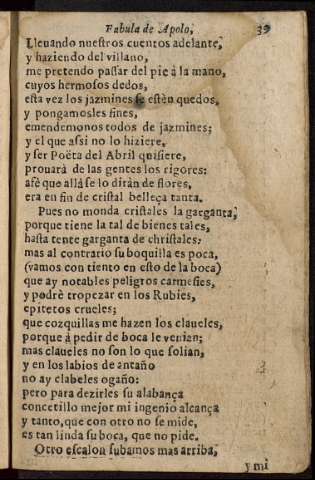 Fabula de Apolo, 39
Lleuando nuestros cuentos adelante,
y haziendo del villano,
me pretendo passar del pie à la mano,
cuyos hermosos dedos,
esta vez los jazmines se estèn quedos,
y pongamosles fines,
emendemonos todos de jazmines;
y el que assi no lo hiziere,
y ser Poëta del Abril quisiere,
prouarà de las gentes los rigores:
afè que allà se lo diràn de flores,
era en fin de cristal belleça tanta.
Pues no monda cristales la garganta,
porque tiene la tal de bienes tales,
hasta tente garganta de christales:
mas al contrario su boquilla es poca,
(vamos con tiento en esto de la boca)
que ay notables peligros carmesies,
y podrè tropezar en los Rubies,
epitetos crueles;
que cozquillas me hazen los claueles,
porque à pedir de boca le venian;
mas claueles no son lo que solian,
y en los labios de antaño
no ay clabeles ogaño:
pero para dezirles su alabança
concetillo mejor mi ingenio alcança
y tanto, que con otro no se mide,
es tan linda su boca, que no pide.
Otro escalon subamos mas arriba,
y mi